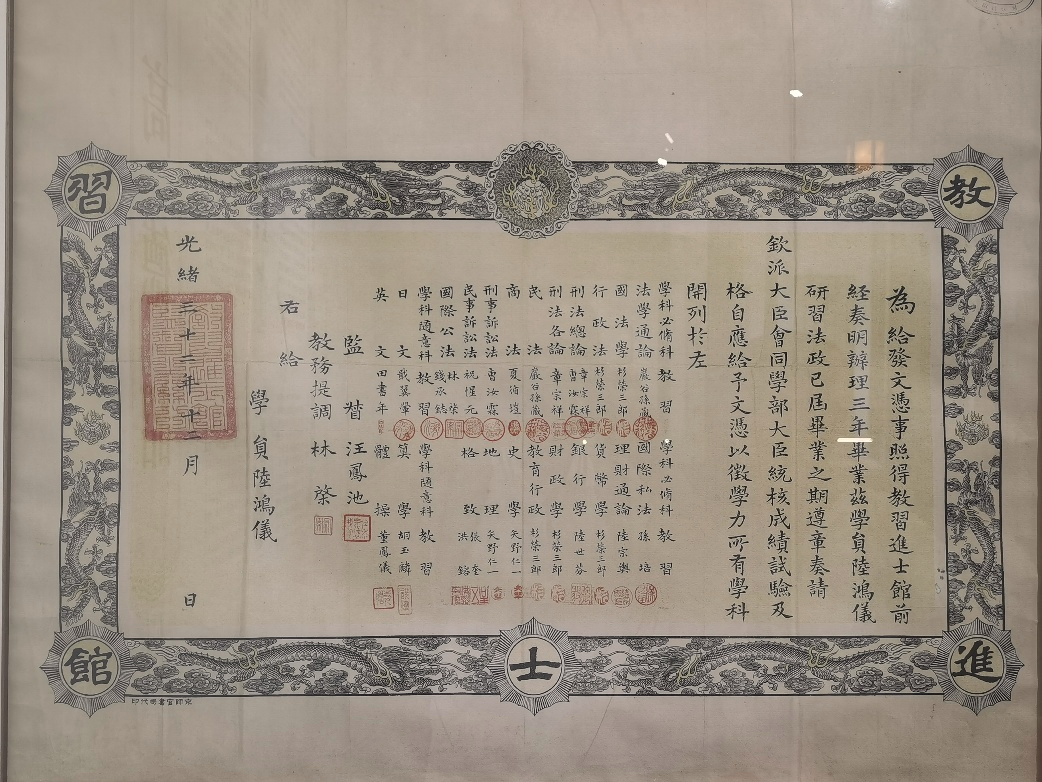 教
習
進
士
館
為給發文憑事照得教習進士館前
經奏明辦理三年畢業茲學員陸鴻儀
研習法政已屆畢業之期遵章奏請
欽派大臣會同學部大臣統核成績試驗及
格自應給予文憑以徵學力所有學科
開列於左
學科必脩科 教習 學科必脩科 教習
法學通論 巖谷孫藏 國際私法 孫培
國法學 杉榮三郎 理財通論 陸宗輿
行政法 杉榮三郎 貨幣學 杉榮三郎
刑法總論 章宗祥 曹汝霖 銀行學 陸世芬
刑法各論 章宗祥 財政學 杉榮三郎
民法 巖谷孫藏 教育行政 杉榮三郎
商法 夏循塏 史學 矢野仁一
刑事訴訟法 曹汝霖 地理 矢野仁一
民事訴訟法 祝惺元 格致 張奎 洪鎔
國際公法 林棨 錢承鋕
學科隨意科 教習 學科隨意科 教習
日文 戢翼翬 算學 胡玉麟
英文 田書年 體操 董鳳儀
監督 汪鳳池
教務提調 林棨
右給
學員陸鴻儀
光緒三十二年十二月 日
京師官書局代印